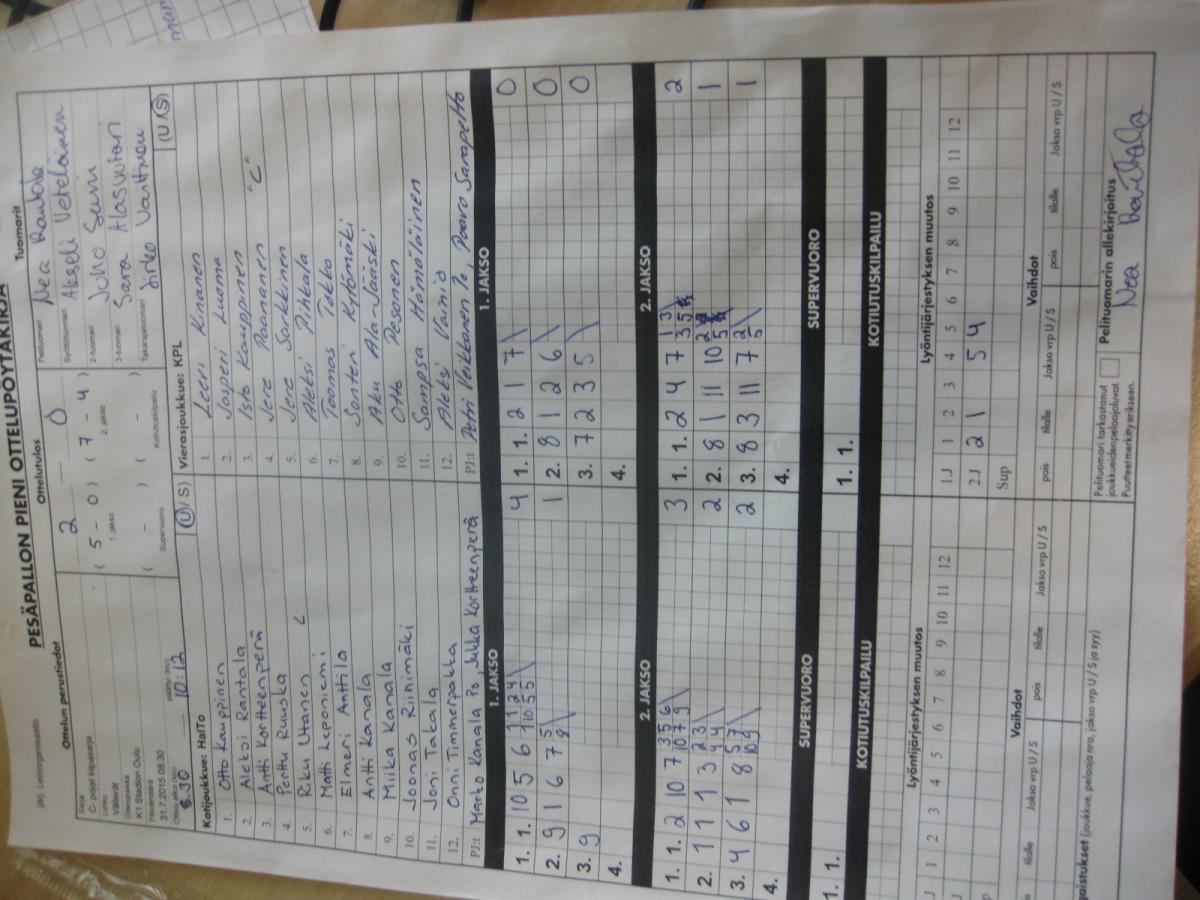 PESÄPALLON PIENI OTTELUPÖYTÄKIRJA
Ottelun perustiedot
Sarja
C-pojat kilpasarja
Lohko
Välierät
Ottelupaikka
K1 Stadion Oulu
Päivämäärä
31.7.2015 08:30
8.30
päättyi (klo)
10:12
Ottelutulos
2 0
( 5 - 0 ) ( 7 - 4 )
1. jakso 2. jakso
( - ) ( - )
Supervuoro Kotiutuskilpailu
Tuomarit
Pelituomari Nea Rautala
Syöttötuomari Akseli Vetelainen
2-tuomari
3-tuomari Sara Alasuutari
Takarajatuomari Jirko
Kotijoukkue: HaiTo (U/S)
1. Otto Kauppinen
2. Aleksi Rantala
3. Antti Kortteenperä
4. Perttu Ruuska
5. Riku Utunen C
6. Matti Leponiemi
7. Elmeri Anttila
8. Antti Kanala
9. Miika Kanala
10. Joonas Riinimäki
11. Joni Takala
12. Onni Timmerpakka
PJ:t Marko Kanala Po Jukka Kortteenperä
Vierasjoukkue: KPL (U/S)
1. Leevi Kinanen
2. Jasperi Luoma
3. Isto Kauppinen "C"
4. Jere Paananen
5. Jere Sarkkinen
6. Aleksi Pihkala
7. Tuomas Tekko
8. Santeri Kytömäki
9. Aku Ala-Jääski
10. Otto Pesonen
11. Sampsa Hämäläinen
12. Aleksi Vainio
PJ:t Petri Veikkanen Po, Paavo Sarapelto
1. JAKSO
1. 1. 10 5 6 1 10 5 5 4
1 2 4
2. 9 1 6 7 1
3. 9
4.
1. JAKSO
1. 1. 2 1 7 0
2. 8 1 2 6 0
3. 7 2 3 5 0
4.
2. JAKSO
1. 1. 2 10 7 10 7 9 3
3 5 6
2. 1 1 1 3 4 4 2
2 3
3. 4 6 1 8 10 9 2
5 7
4.
2. JAKSO
1. 1. 2 4 7 2
2. 8 1 11 10 1
3. 8 3 11 7 1
4.
SUPERVUORO
1. 1.
SUPERVUORO
1. 1.
KOTIUTUSKILPAILU
KOTIUTUSKILPAILU
Lyöntijärjestyksen muutos
1 2 3 4 5 6 7 8 9 10 11 12
Lyöntijärjestyksen muutos
1 2 3 4 5 6 7 8 9 10 11 12
1.J
2.J 2 1 5 4
Sup
Vaihdot
tilalle Jakso vrp U / S pois tilalle Jakso vrp U / S
Vaihdot
pois tilalle Jakso vrp U / S pois tilalle Jakso vrp U / S
(joukkue, pelaaja nro, jakso vrp U / S ja syy)
Pelituomari tarkastanut
joukkueiden pelaajaluvat.
Puutteet merkitty erikseen.
Pelituomarin allekirjoitus
Nea Rautala